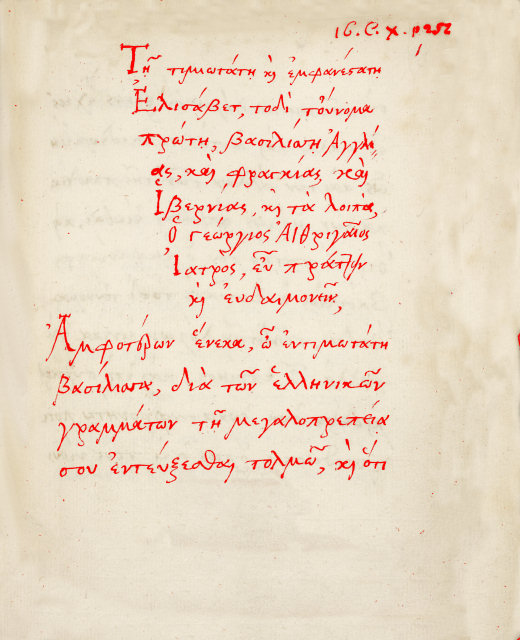 16. C. X. p 252
Τῇ τιμιωτάτῃ κỳ ἐμφανεστάτῃ
Ἐλισάβετ, τοδὶ τοὔνομα
πρώτῃ, βασιλίσσῃ Ἀγγλί-
ας, καὶ φραγκίας καὶ
Ἰβερνίας, κỳ τὰ λοιπὰ,
ὁ γεώργιος Αἰθριγαῖος
Ἰατρὸς, εὖ πράττειν
κỳ εὐδαιμονεῖν,
Ἀμφοτέρων ἕνεκα, ὦ ἐντιμωτάτη
βασίλισσα, διὰ τῶν ἑλληνικῶν
γραμμάτων τῇ μεγαλοπρεπείᾳ
σου ἐντεύξεσθαι τολμῶ, κỳ ὅτι